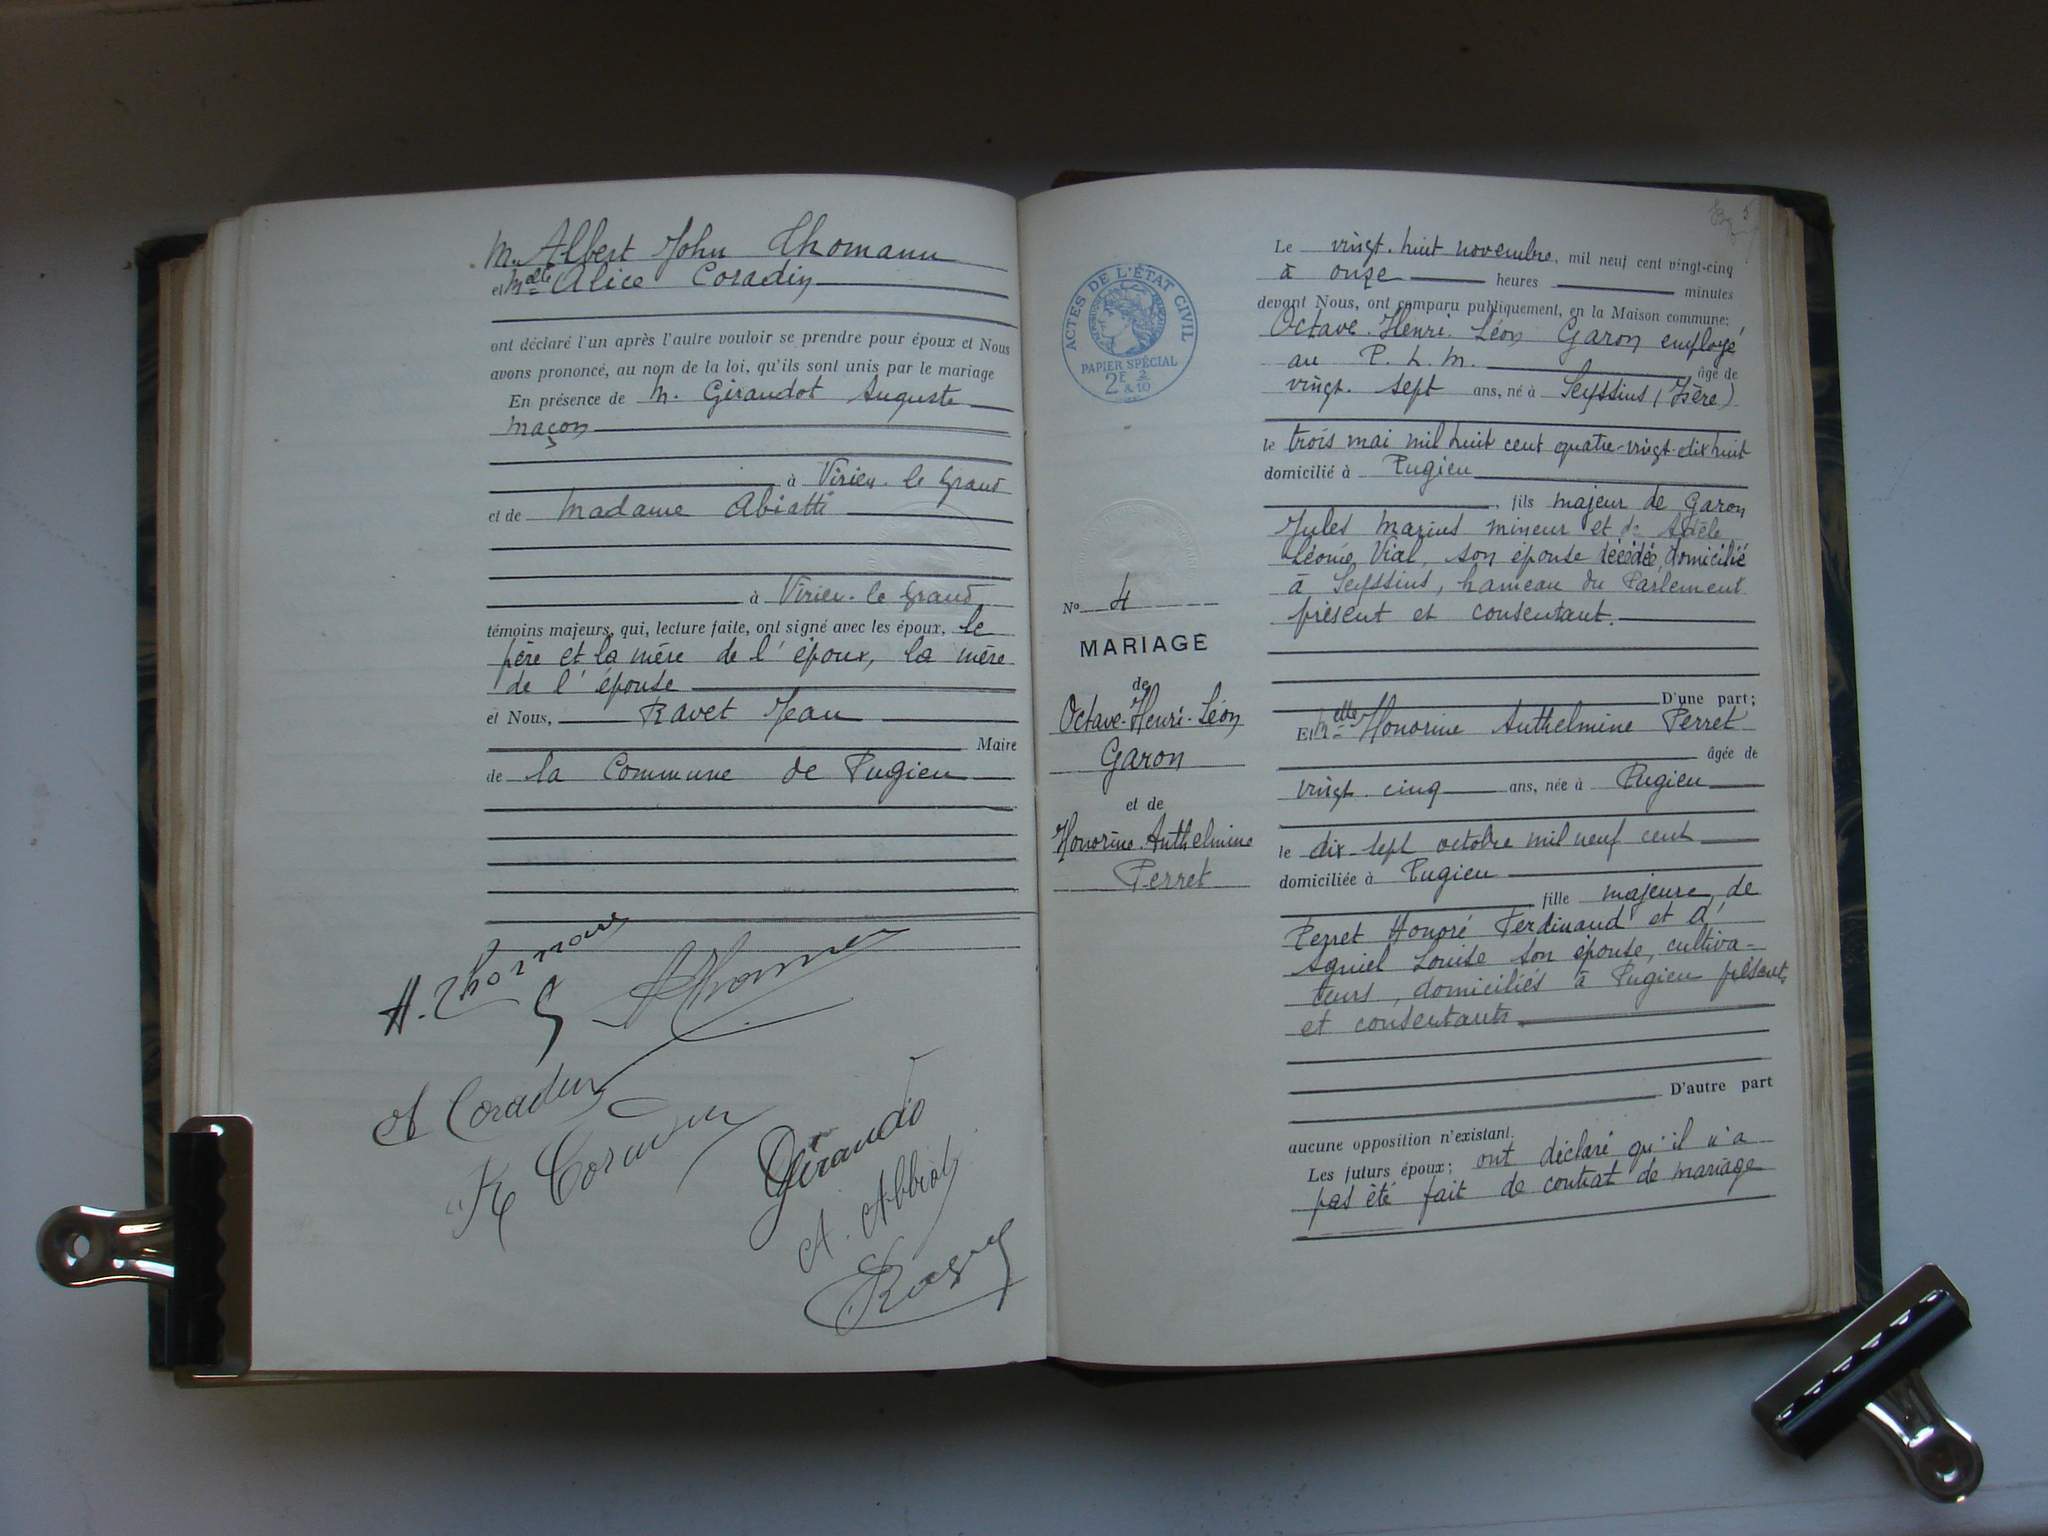 M. Albert John Thomann
et Melle Alice Coradin
ont déclaré l'un après l'autre vouloir se prendre pour époux et Nous
avons prononcé, au nom de la loi, qu'ils sont unis par le mariage
En présence de M. Giraudot Auguste
maçon
à Virieu-le Grand
et de Madame Abiatti
à Virieu-le Grand
témoins majeurs, qui, lecture faite, ont signé avec les époux, le
père et la mère de l'époux, la mère
de l'épouse
et Nous, Ravet Jean
Maire
de la Commune de Pugieu
A Coradin
Giraudo
Le vingt-huit novembre, mil neuf cent vingt-cinq
à onze heures minutes
devant Nous, ont comparu publiquement, en la Maison commune;
Octave-Henri-Léon Garon employé
au P.L.M. âgé de
vingt-sept ans, né à Seyssins (Isère)
le trois mai mil huit cent quatre-vingt-dix huit
domicilié à Pugieu
, fils majeur de Garon
Jules Marius mineur et de Adèle
Léonie Vial, son épouse décédée, domicilié
à Seyssins, hameau du Parlement
présent et consentant.
D'une part;
Et Melle Honorine Anthelmine Perret
âgée de
vingt cinq ans, née à Pugieu
le dix-sept octobre mil neuf cent
domiciliée à Pugieu
fille majeure de
Perret Honoré Ferdinand et d'
Agniel Louise son épouse, cultiva-
teurs, domiciliés à Pugieu présents
et consentants
D'autre part
aucune opposition n'existant.
Les futurs époux; ont déclaré qu'il n'a
pas été fait de contrat de mariage
ACTES DE L'ÉTAT CIVIL
PAPIER SPÉCIAL
2F & 2/10
No 4
MARIAGE
de
Octave-Henri-Léon
Garon
et de
Honorine-Anthelmine
Perret